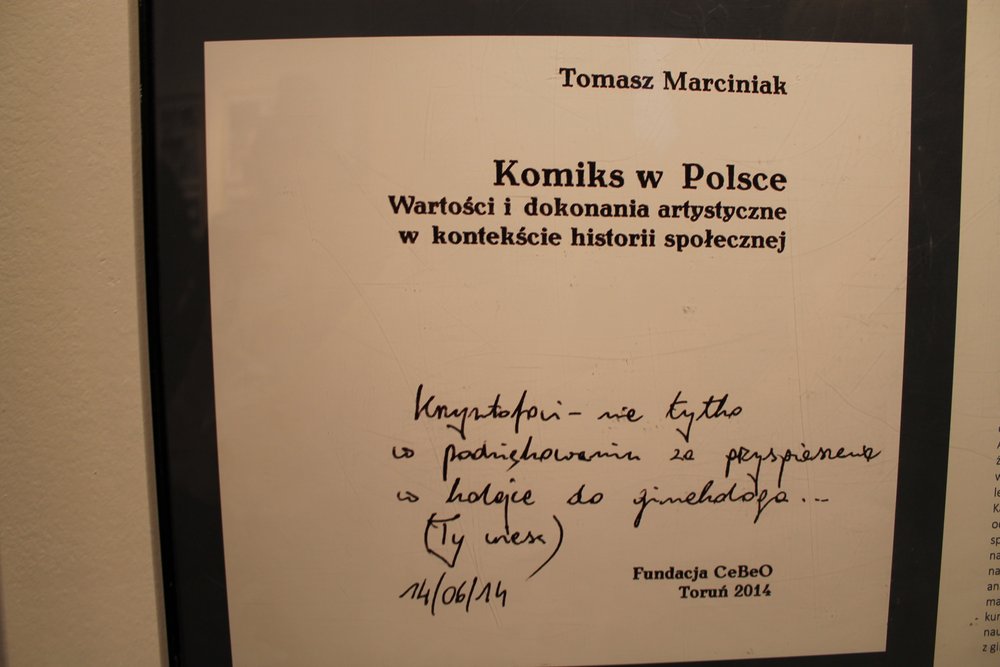 Tomasz Marciniak
Komiks w Polsce
Wartości i dokonania artystyczne
w kontekście historii społecznej
Krzysztofowi – nie tylko
w podziękowaniu za przyspieszenie
w kolejce do ginekologa...
(Ty wiesz)
14/06/14
Fundacja CeBeO
Toruń 2014